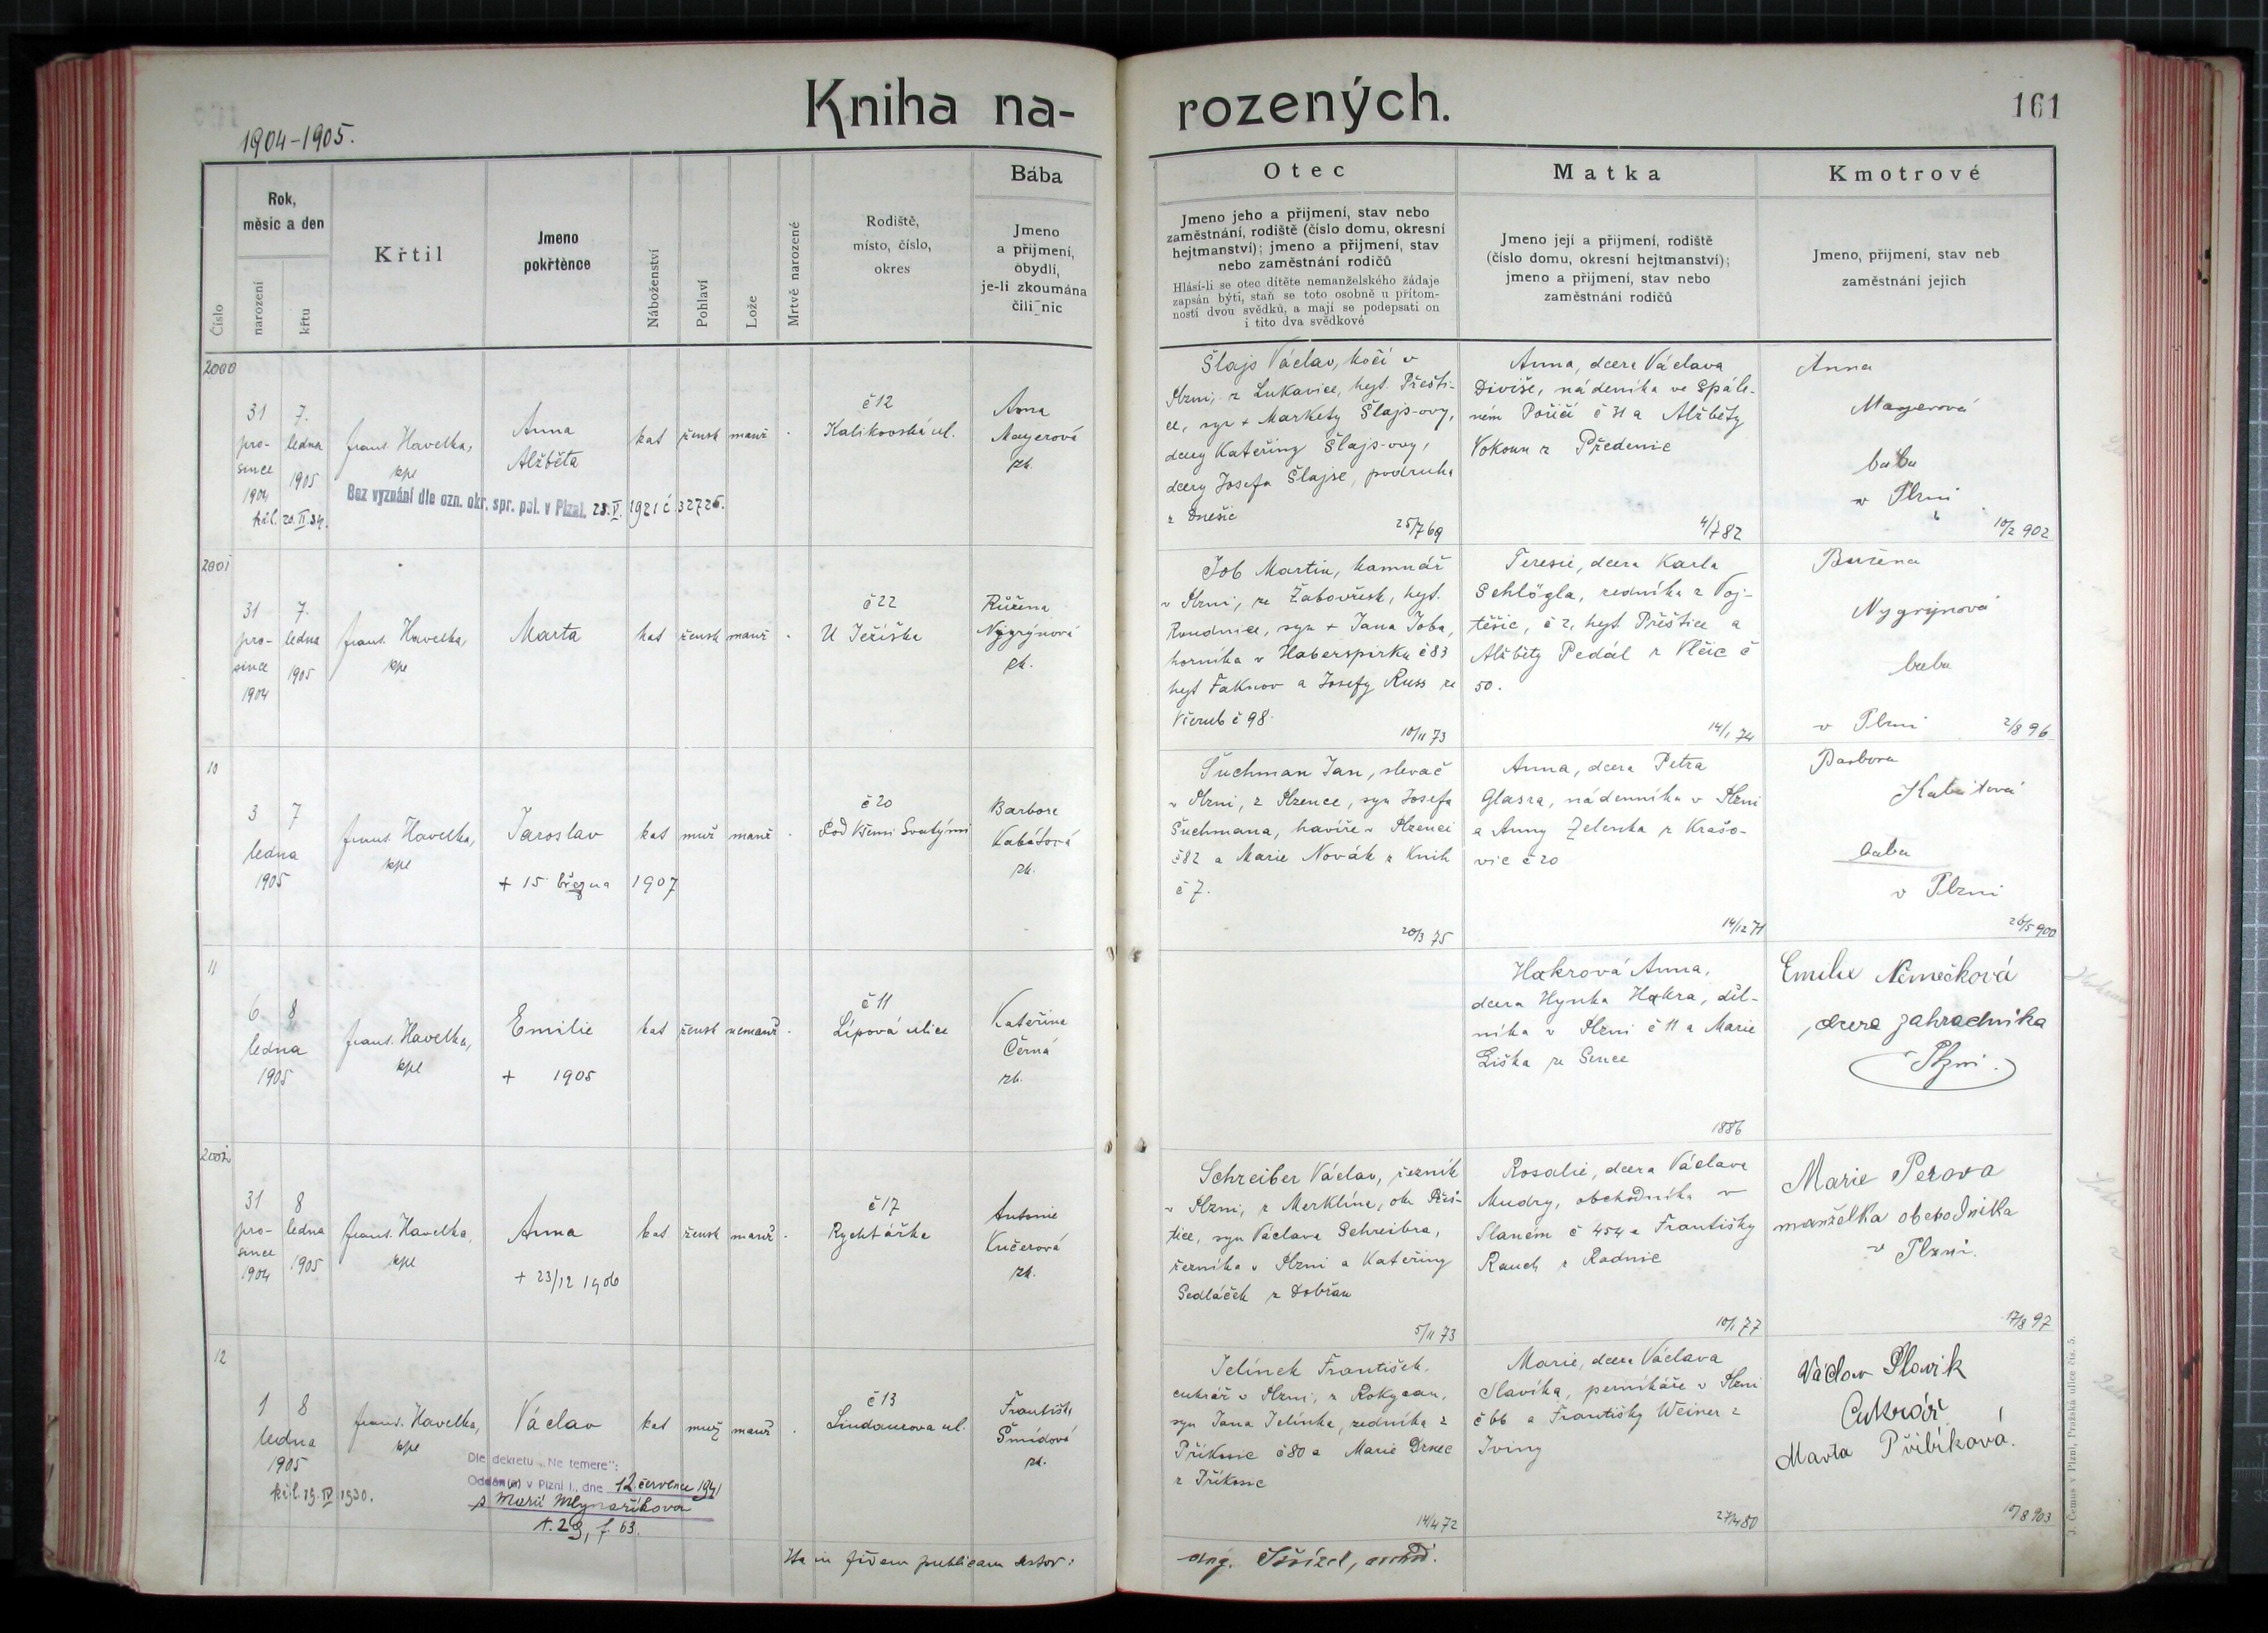 Kniha na-
rozených.
161
1904-1905.
Číslo
Rok,
měsíc a den
narození
křtu
Křtil
Jmeno
pokřtěnce
Náboženství
Pohlaví
Lože
Mrtvě narozené
Rodiště,
místo, číslo,
okres
Bába
Jmeno
a přijmení,
obydlí,
je-li zkoumána
čili nic
Otec
Jmeno jeho a přijmení, stav nebo
zaměstnání, rodiště (číslo domu, okresní
hejtmanství); jmeno a přijmení, stav
nebo zaměstnání rodičů
Hlásí-li se otec dítěte nemanželského žádaje
zapsán býti, staň se toto osobně u přítom-
nosti dvou svědků, a mají se podepsati on
i tito dva svědkové
Matka
Jmeno její a přijmení, rodiště
(číslo domu, okresní hejtmanství);
jmeno a přijmení, stav nebo
zaměstnání rodičů
Kmotrové
Jmeno, přijmení, stav neb
zaměstnání jejich
2000
31
pro-
since
1904
7.
ledna
1905
frant. Havelka,
kpl
Anna
Alžběta
kat
žensk
manž
č 12
Kalikovská ul.
Anna
Mayerová
zk.
Bez vyznání dle ozn. okr. spr. pol. v Plzni. 23.V. 1921 č 32726.
biř. 20.II.34.
Šlajs Václav, kočí v
Plzni, z Lukavice, hejt. Přešti-
ce, syn + Markety Šlajs-ovy,
dcery Kateřiny Šlajs-ovy,
dcery Josefa Šlajse, podruha
z Dnešic
25/7 69
Anna, dcera Václava
Diviše, nádeníka ve Spále-
ném Poříčí č 31 a Alžběty
Vokoun z Předenic
4/7 82
Anna
Mayerová
bába
v Plzni
10/2 902
2001
31
pro-
since
1904
7.
ledna
1905
frant. Havelka,
kpl
Marta
kat
žensk
manž
č 22
U Ježíška
Růžena
Nygrýnová
zk.
Job Martin, kamnář
v Plzni, ze Žabovřesk, hejt.
Roudnice, syn + Jana Joba,
horníka v Haberspirku č 83
hejt Faknov a Josefy Russ ze
Všerub č 98.
10/11 73
Teresie, dcera Karla
Schlögla, zedníka z Voj-
těšic, č 2, hejt Přeštice a
Alžběty Pedál z Vlčic č
50.
14/1 74
Nygrýnová
baba
v Plzni
2/8 96
10
3
ledna
1905
7
frant. Havelka,
kpl
Jaroslav
+ 15 března 1907
kat
muž
manž
č 20
Pod Všemi Svatými
Barbora
Kabátová
zk.
Šuchman Jan, slevač
v Plzni, z Plzence, syn Josefa
Šuchmana, havíře v Plzenci
č 82 a Marie Novák z Knih
č 7.
20/3 75
Anna, dcera Petra
Glasra, nádenníka v Plzni
a Anny Zelenka z Krašo-
vic č 20
14/12 71
Barbora
Kabátová
baba
v Plzni
26/5 900
11
6
ledna
1905
8
frant. Havelka,
kpl
Emilie
+ 1905
kat
žensk
nemanž
č 11
Lípová ulice
Kateřina
Černá
zk.
Hakrová Anna,
dcera Hynka Hakra, děl-
níka v Plzni č 11 a Marie
Liška ze Sence
1886
Emilie Němečková
dcera zahradníka
Plzni.
2002
31
pro-
since
1904
8
ledna
1905
frant. Havelka,
kpl
Anna
+ 23/12 1906
kat
žensk
manž
č 17
Rychtářka
Antonie
Kučerová
zk.
Schreiber Václav, řezník
v Plzni, z Merklína, okr. Přeš-
tice, syn Václava Schreibra,
řezníka v Plzni a Kateřiny
Sedláček z Dobřan
5/11 73
Rosalie, dcera Václava
Mudry, obchodníka v
Slaném č 454 a Františky
Rauch z Radnic
10/1 77
Marie Perova
manželka obchodníka
v Plzni.
17/8 97
12
1
ledna
1905
8
frant. Havelka,
kpl
Václav
kat
muž
manž
č 13
Lindauerova ul.
Františka
Šmídová
zk.
biř. 19.IV 1930.
Dle dekretu „Ne temere":
Oddán(a) v Plzni I., dne 12. července 1941
s Marií Mlynaříkovou
t. 29, f. 63.
Jelínek František,
cukrář v Plzni, z Rokycan,
syn Jana Jelínka, zedníka z
Příkosic č 80 a Marie Drnec
z Příkosic
14/4 72
Marie, dcera Václava
Slavíka, perníkáře v Plzni
č 66 a Františky Weiner z
Jviny
27/4 80
Václav Slavík
Cukrář
Marta Přibíková.
10/8 903
In fidem publicam testor:
J. Čemus v Plzni, Pražská ulice čís. 5.